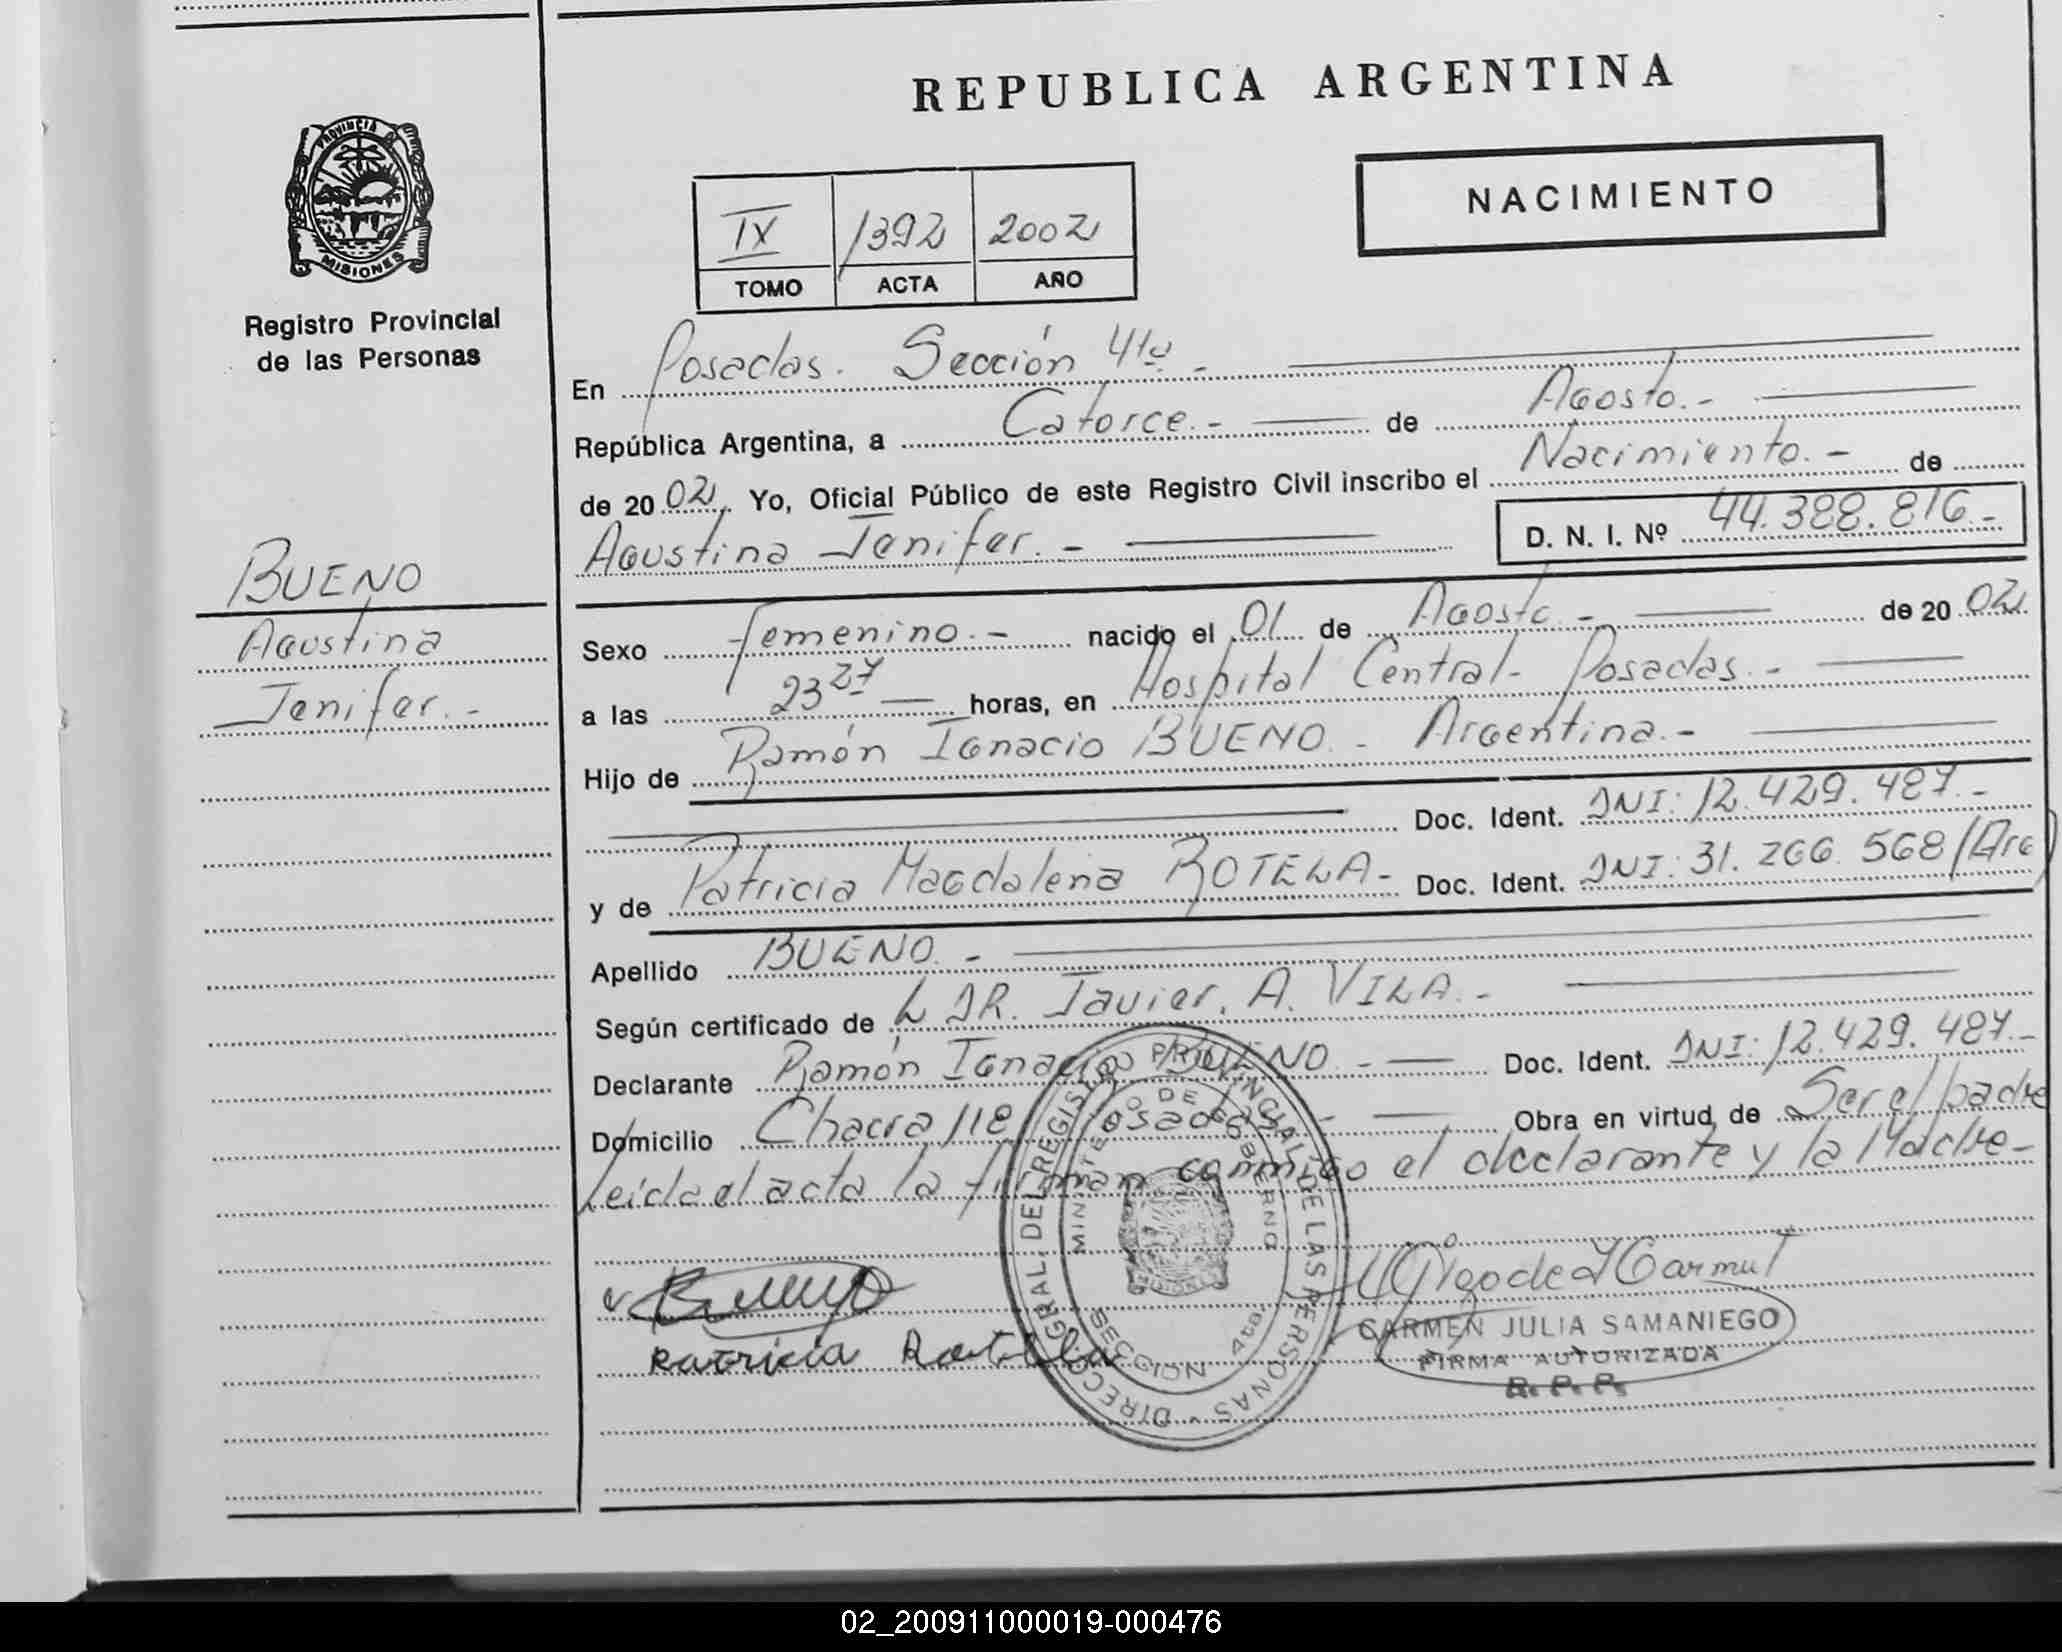 REPUBLICA ARGENTINA
NACIMIENTO
PROVINCIA DE
MISIONES
Registro Provincial
de las Personas
IX 1392 2002
TOMO ACTA AÑO
En Posadas. Sección 4ta. -
República Argentina, a Catorce.- de Agosto.-
de 2002. Yo, Oficial Público de este Registro Civil inscribo el Nacimiento.- de
Agustina Jenifer.- D. N. I. Nº 44.388.816.-
BUENO
Agustina
Jenifer.-
Sexo femenino.- nacido el 01 de Agosto.- de 2002
a las 23 27 horas, en Hospital Central- Posadas.-
Hijo de Ramón Ignacio BUENO. - Argentina.-
Doc. Ident. DNI: 12.429.487.-
y de Patricia Magdalena ROTELA- Doc. Ident. DNI: 31.266.568 (Arg)
Apellido BUENO. -
Según certificado de L DR. Javier. A. VILA.-
Declarante Ramón Ignacio BUENO. - Doc. Ident. DNI: 12.429.487.-
Domicilio Chacra 118 Posadas. - Obra en virtud de Ser el padre
Leida el acta la firman conmigo el declarante y la Madre-
Bueno
Patricia Rotella
DIRECC. GRAL. DEL REGISTRO PROVINCIAL DE LAS PERSONAS -
MINISTERIO DE GOBIERNO
SECCION 4ta.
CARMEN JULIA SAMANIEGO
FIRMA AUTORIZADA
R. P. P.
02_200911000019-000476